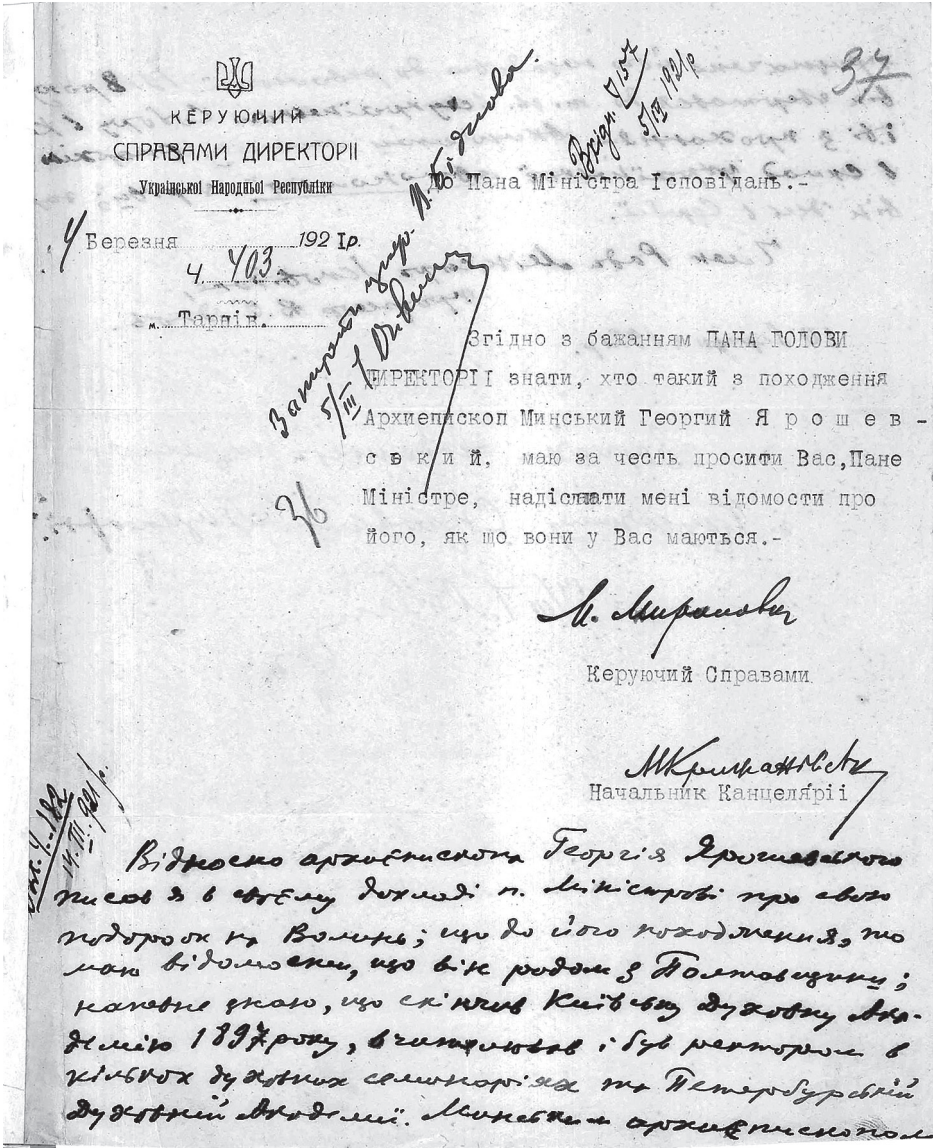 37
КЕРУЮЧИЙ
СПРАВАМИ ДИРЕКТОРІІ
Української Народньої Республіки
Вхідн. 7157
5/III 1921р
До Пана Міністра Ісповідань.-
4 Березня 1921р.
Ч. 403
м. Тарнів.
Запитати
5/III
Згідно з бажанням ПАНА ГОЛОВИ
ДИРЕКТОРІІ знати, хто такий з походження
Архиепископ Минський Георгий Я р о ш е в -
с ь к и й, маю за честь просити Вас,Пане
Міністре, надіслати мені відомости про
його, як що вони у Вас маються.-
36
М. Миронович
Керуючий Справами
Начальник Канцеляріі
Ч. 182
14.III.921р.
Відносно архиєпископа Георгія Ярошевського
писав я в своєму докладі п. Міністрові про свою
подорож на Волинь; що до його походження, то
маю відомости, що він родом з Полтавщини;
напевне знаю, що скінчив Київську Духовну Ака-
демію 1897 року, вчителював і був ректором в
кількох духовних семинаріях та Петербурській
Духовній Академії. Минським архиєпископом